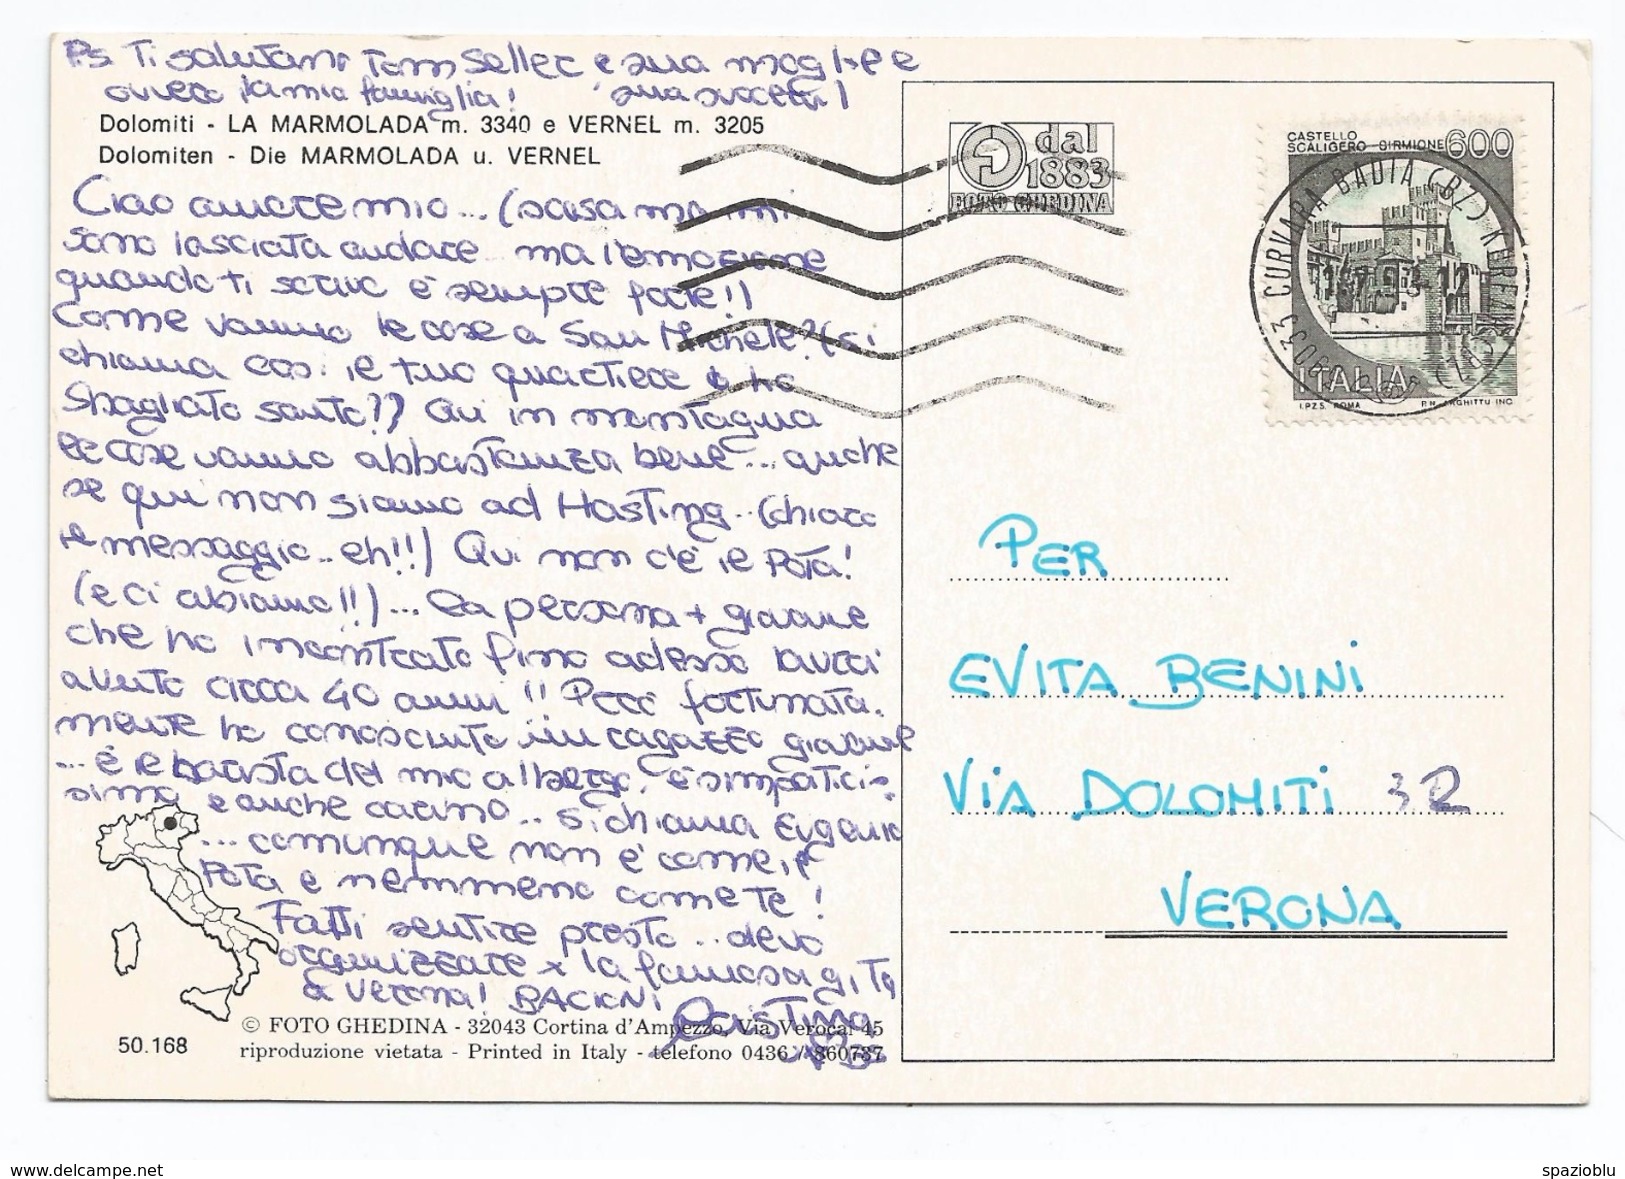 Ps. Ti salutano Tom Sellec e sua moglie e
ovvero la mia famiglia! sua suocera!
Dolomiti - LA MARMOLADA m. 3340 e VERNEL m. 3205
Dolomiten - Die MARMOLADA u. VERNEL
Ciao amore mio... (scusa ma mi
sono lasciata andare.. ma l'emozione
quando ti scrivo è sempre forte!!)
Come vanno le cose a San Michele? (si
chiama così il tuo quartiere o ho
sbagliato santo??) Qui in montagna
le cose vanno abbastanza bene... anche
se qui non siamo ad Hasting.. (chiaro
il messaggio.. eh!!) Qui non c'è il Pota!
(e ci abiamo!!)... La persona + giovane
che ho incontrato fino adesso avrà
avuto circa 40 anni!! Però fortunata.
mente ho conosciuto un ragazzo giovane
... è il barista del mio albergo, è simpatici-
simo e anche carino.. si chiama Eugenio
... comunque non è come il
Pota e nemmeno come te!
Fatti sentire presto.. devo
organizzare x la famosa gita
a Verona! BACIONI
Cristina
© FOTO GHEDINA - 32043 Cortina d'Ampezzo, Via Verocai 45
50.168 riproduzione vietata - Printed in Italy - telefono 0436 / 860737
dal
1883
FOTO GHEDINA
CASTELLO
SCALIGERO - SIRMIONE 600
ITALIA
I.P.Z.S. ROMA
CURVARA BADIA (BZ)
PER
EVITA BENINI
VIA DOLOMITI 32
VERONA
delcampe.net
spazioblu